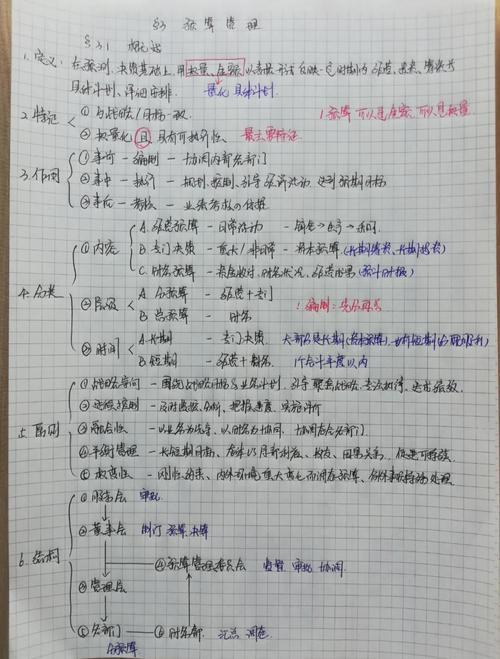 §3 预算管理
§3.1 概述
1. 定义: 在预测、决策基础上, 用数量、金额以表格形式反映一定时期内经营、 具体计划、详细安排. 量化 具体计划
2. 特征 ① 与战略/目标一致 ! 预算可以是金额, 可以是数量
② 数量化且具有可执行性、 最主要特征
3. 作用 ① 事前 - 编制 - 协调内部各部门
② 事中 - 执行 - 规划、控制、引导经济活动 达到预期目标
③ 事后 - 考核 - 业绩考核的依据
4. 分类 ① 内容 A. 经营预算 - 日常活动 - 销售→生产→费用
B. 专门决策 - 重大/非日常 - 资本预算 (长期筹资、长期投资)
C. 财务预算 - 资金收付、财务状况、经营成果 (预计财报)
② 层级 A. 分预算 - 经营+专门 ! 编制: 先分再总
B. 总预算 - 财务
③ 时间 A. 长期 - 专门决策. 大部分是长期 (资本预算), 也有短期
B. 短期 - 经营+财务 1个会计年度以内
5. 原则 ① 战略导向 - 围绕战略目标与业务计划、引导聚焦战略、专注执行、达成绩效
② 过程控制 - 及时监控、分析、把握进度、实施评价
③ 融合性 - 以业务为先导、以财务为协同、协调各个部门
④ 平衡管理 - 长短期目标、整体VS局部利益、收支、因果关系, 促进可持续
⑤ 权变性 - 刚性约束、内外环境重大变化可调整预算、例外事项特殊处理
6. 结构 ① 股东会 审批
② 董事会 制订 预算、决算
④ 预算管理委员会 监督 审批 协调
③ 管理层
⑤ 各部门 ⑥ 财务部 汇总 调整
分预算